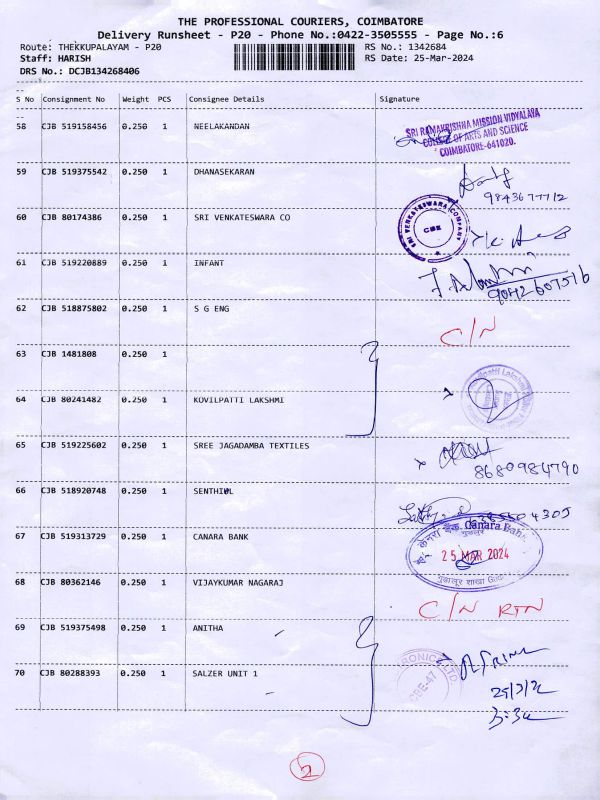 THE PROFESSIONAL COURIERS, COIMBATORE
Delivery Runsheet - P20 - Phone No.:0422-3505555 - Page No.:6
Route: THEKKUPALAYAM - P20 RS No.: 1342684
Staff: HARISH RS Date: 25-Mar-2024
DRS No.: DCJB134268406
S No Consignment No Weight PCS Consignee Details Signature
58 CJB 519158456 0.250 1 NEELAKANDAN
SRI RAMAKRISHNA MISSION VIDYALAYA
COLLEGE OF ARTS AND SCIENCE
COIMBATORE-641020.
59 CJB 519375542 0.250 1 DHANASEKARAN
9843677712
60 CJB 80174386 0.250 1 SRI VENKATESWARA CO
SRI VENKATESWARA COMPANY
CBE
61 CJB 519220889 0.250 1 INFANT
9042607516
62 CJB 518875802 0.250 1 S G ENG
C/N
63 CJB 1481808 0.250 1
64 CJB 80241482 0.250 1 KOVILPATTI LAKSHMI
65 CJB 519225602 0.250 1 SREE JAGADAMBA TEXTILES
8680984790
66 CJB 518920748 0.250 1 SENTHIL
67 CJB 519313729 0.250 1 CANARA BANK
केनरा बैंक Canara Bank
25 MAR 2024
68 CJB 80362146 0.250 1 VIJAYKUMAR NAGARAJ
C/N RTN
69 CJB 519375498 0.250 1 ANITHA
70 CJB 80288393 0.250 1 SALZER UNIT 1
CBE-47
2